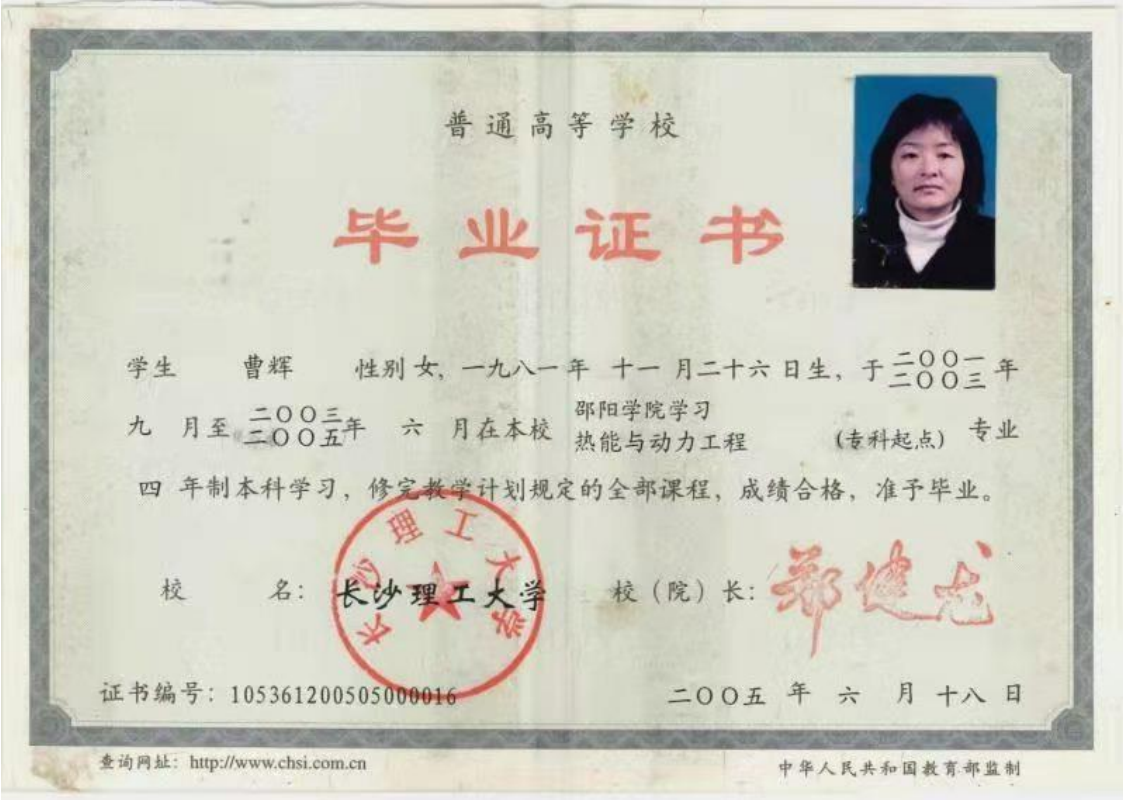 普通高等学校
毕业证书
学生 曹辉 性别 女，一九八一年 十一 月二十六 日生，于 二〇〇一 二〇〇三 年
九 月至 二〇〇三 二〇〇五 年 六 月在本校 邵阳学院学习 热能与动力工程 (专科起点) 专业
四 年制本科学习，修完教学计划规定的全部课程，成绩合格，准予毕业。
校 名：长沙理工大学 校（院）长：郑健龙
长沙理工大学
证书编号：105361200505000016 二〇〇五 年 六 月 十八 日
查询网址：http://www.chsi.com.cn 中华人民共和国教育部监制